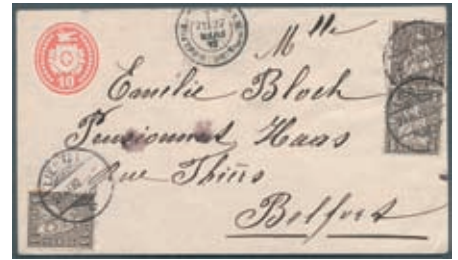 10
Mlle
Emilie Bloch
Pensionnat Haas
rue Thiers
Belfort